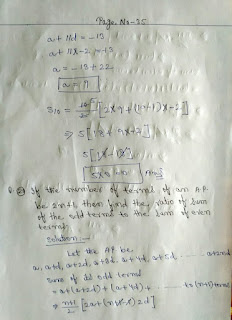 Page No-35
a+11d = -13
a+11x-2 = -13
a = -13+22
a = 9
S10 = 10/2 [2x9+(10-1)x-2]
⇒ 5[18+9x-2]
5[18-18]
5x0 = 0 Ans
Q. If the number of terms of an A.P.
be 2n+1, then find the ratio of sum
of the odd terms to the sum of even
terms.
Solution:-
Let the A.P. be
a, a+d, a+2d, a+3d, a+4d, a+5d ...... a+2nd
Sum of its odd terms
= a+(a+2d)+(a+4d)+ ...... to (n+1) terms
⇒ n+1/2 [2a+(n+1-1)2d]